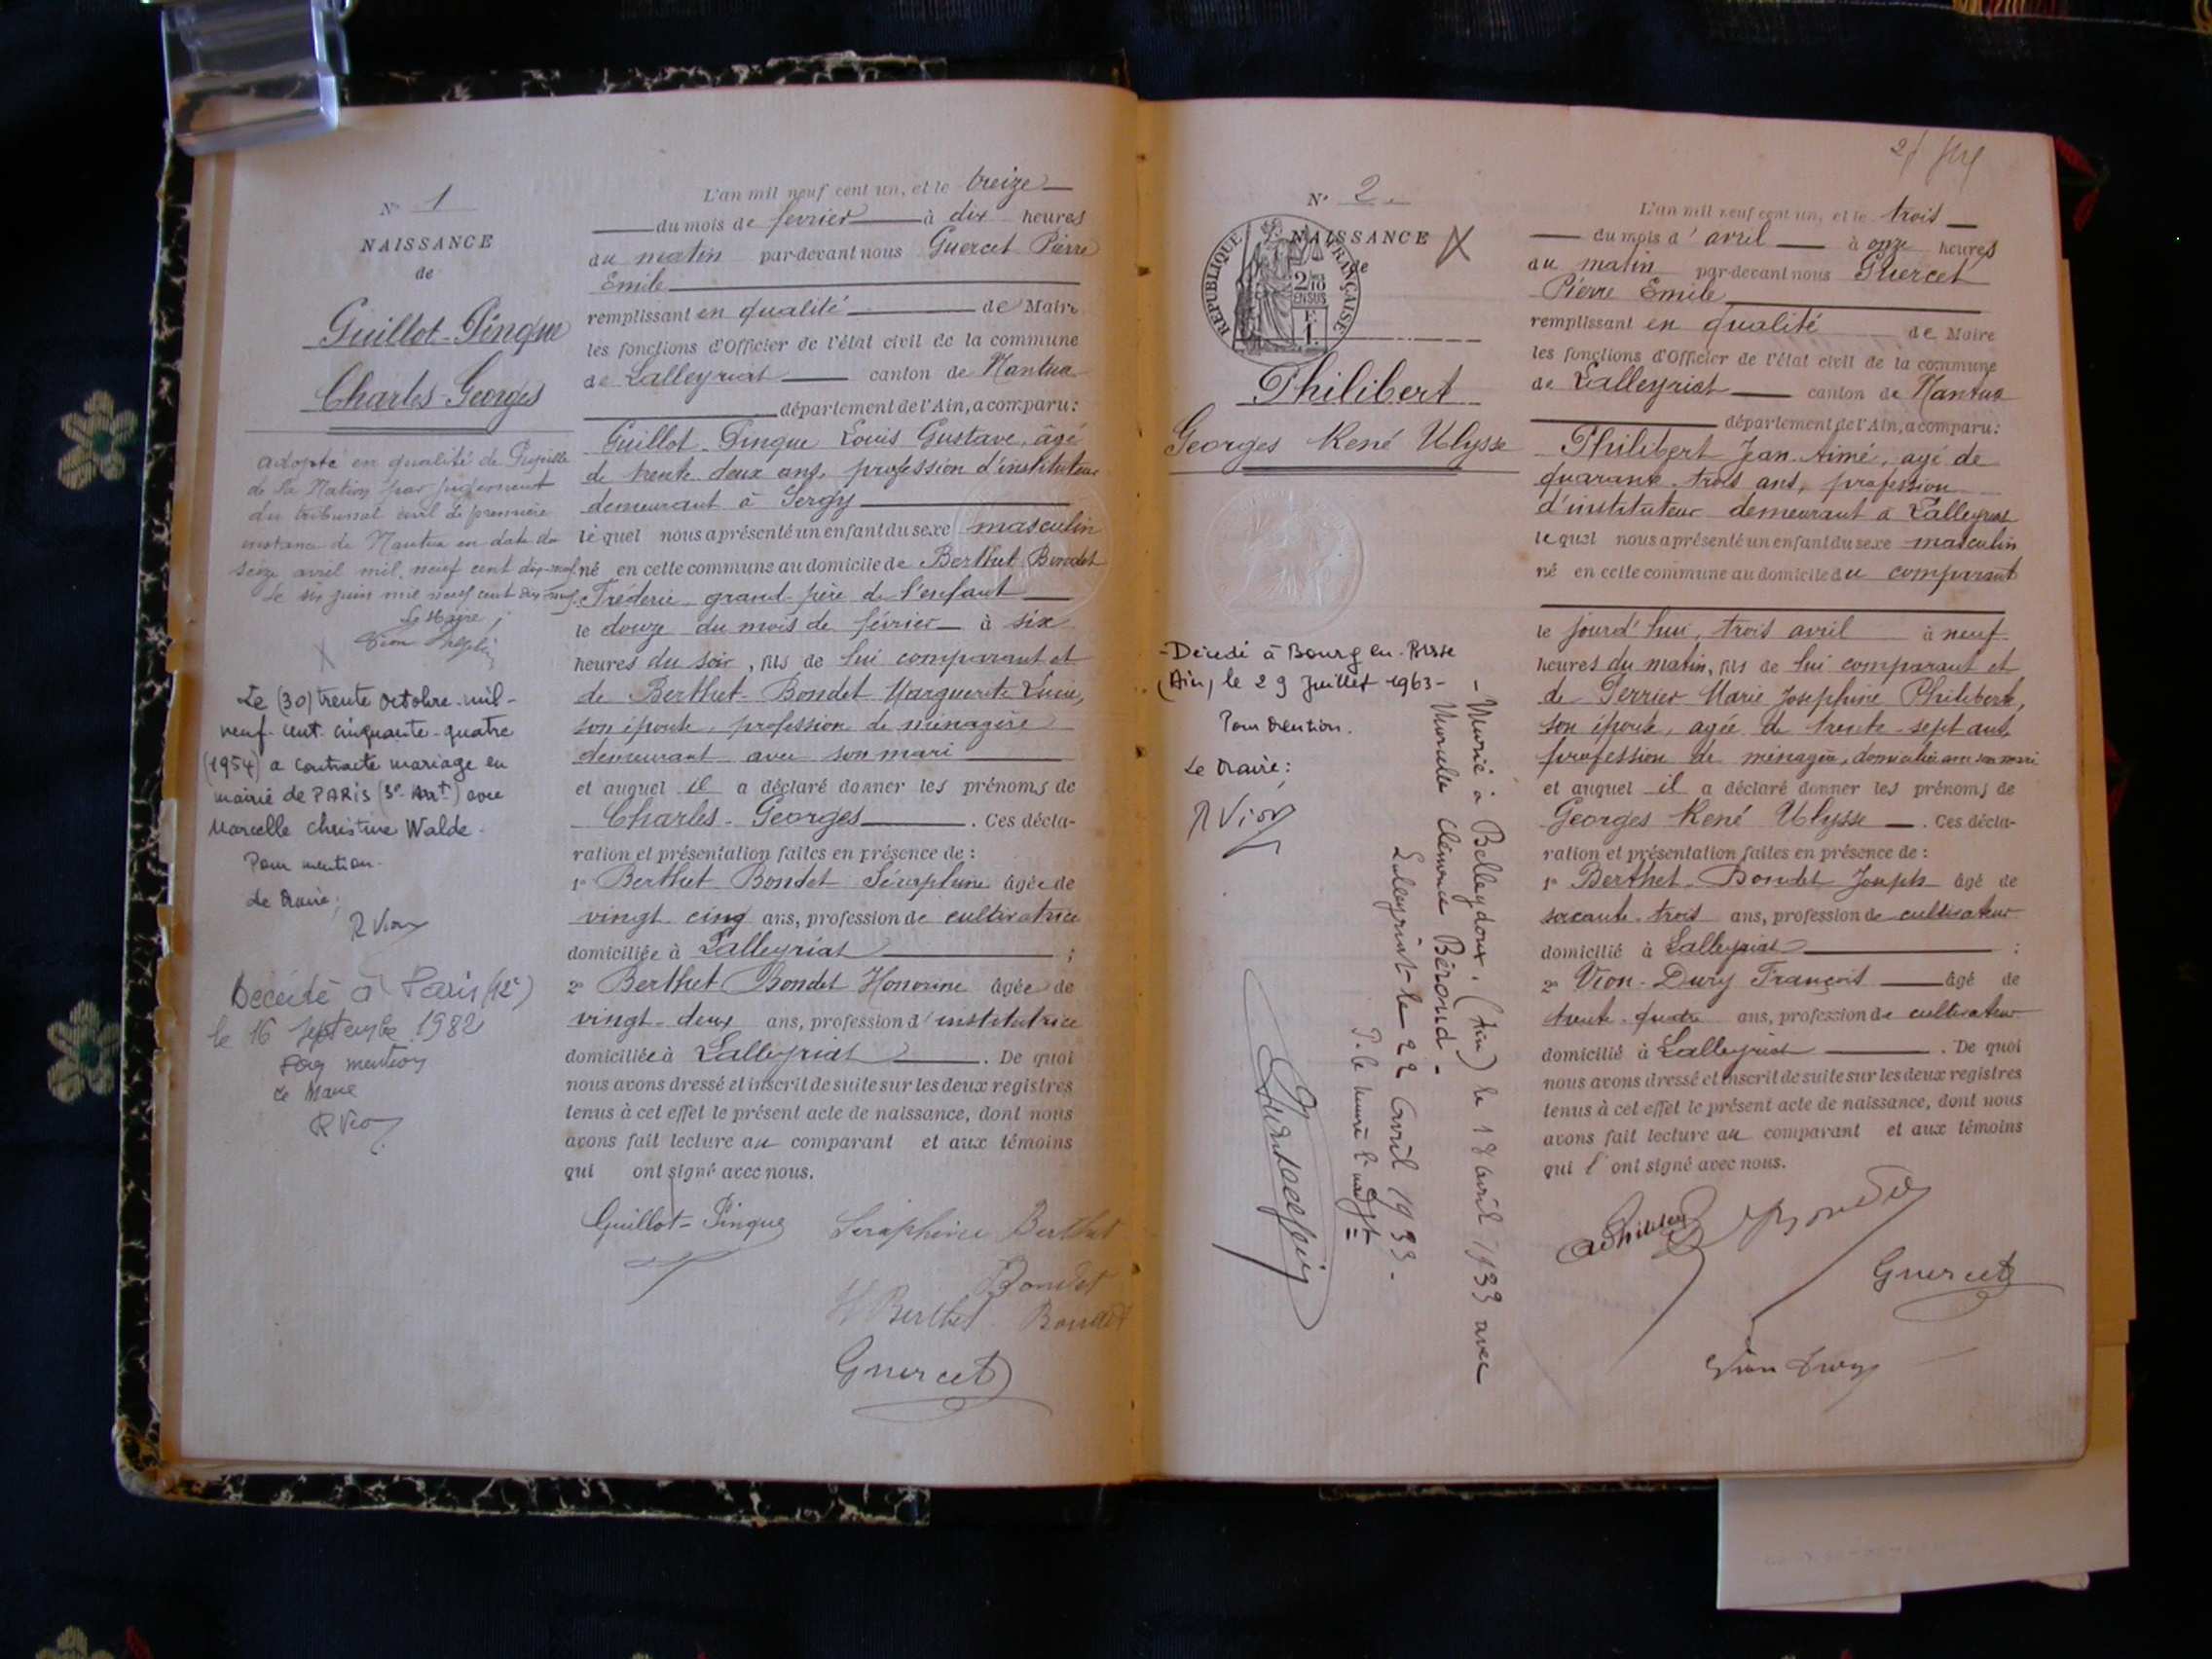 N° 1
NAISSANCE
de
Guillot-Pingue
Charles-Georges
adopté en qualité de Pupille
de la Nation par jugement
du tribunal civil de première
instance de Nantua en date du
seize avril mil neuf cent dix-neuf
Le six juin mil neuf cent dix-neuf
Le Maire,
Le (30) trente Octobre mil-
neuf-cent cinquante-quatre
(1954) a contracté mariage en
mairie de PARIS (3e Arrt) avec
Marcelle Christine Walde.
Pour mention.
Le Maire;
R Vion
Décédé à Paris (12e)
le 16 septembre 1982
Pour mention
Le Maire
R Vion
L'an mil neuf cent un, et le treize
du mois de février à dix heures
du matin par-devant nous Guercet Pierre
Emile
remplissant en qualité de Maire
les fonctions d'Officier de l'état civil de la commune
de Lalleyriat canton de Nantua
département de l'Ain, a comparu:
Guillot-Pingue Louis Gustave, âgé
de trente deux ans, profession d'instituteur
demeurant à Sergy
lequel nous a présenté un enfant du sexe masculin
né en cette commune au domicile de Berthet Bondet
Fréderic grand-père de l'enfant
le douze du mois de février à six
heures du soir, fils de lui comparant et
de Berthet-Bondet Marguerite Lucie,
son épouse, profession de ménagère
demeurant avec son mari
et auquel il a déclaré donner les prénoms de
Charles-Georges. Ces décla-
ration et présentation faites en présence de :
1° Berthet Bondet Séraphine âgée de
vingt cinq ans, profession de cultivatrice
domiciliée à Lalleyriat ;
2° Berthet Bondet Honorine âgée de
vingt-deux ans, profession d'institutrice
domiciliée à Lalleyriat. De quoi
nous avons dressé et inscrit de suite sur les deux registres
tenus à cet effet le présent acte de naissance, dont nous
avons fait lecture au comparant et aux témoins
qui ont signé avec nous.
Guillot-Pingue Séraphine Berthet
Bondet
H Berthet Bondet
Guercet
2
N° 2
NAISSANCE
de
REPUBLIQUE FRANÇAISE
2/10 EN SUS
F. 1.
Philibert
Georges René Ulysse
-Décédé à Bourg en-Bresse
(Ain) le 29 Juillet 1963-
Pour mention.
Le Maire:
R Vion
- Marié à Belleydoux. (Ain) le 18 avril 1933 avec
Clémence Béroud -
Lalleyriat le 22 avril 1933-
L'an mil neuf cent un, et le trois
du mois d'avril à onze heures
du matin par-devant nous Guercet
Pierre Emile
remplissant en qualité de Maire
les fonctions d'Officier de l'état civil de la commune
de Lalleyriat canton de Nantua
département de l'Ain, a comparu:
Philibert Jean Aimé, agé de
quarante-trois ans, profession
d'instituteur demeurant à Lalleyriat
lequel nous a présenté un enfant du sexe masculin
né en cette commune au domicile du comparant
le jourd'hui, trois avril à neuf
heures du matin, fils de lui comparant et
de Perrier Marie Josephine Philiberte,
son épouse, agée de trente-sept ans,
profession de ménagère, domiciliée avec son mari
et auquel il a déclaré donner les prénoms de
Georges René Ulysse. Ces décla-
ration et présentation faites en présence de :
1° Berthet-Bondet Joseph âgé de
soixante-trois ans, profession de cultivateur
domicilié à Lalleyriat ;
2° Vion-Dury François âgé de
trente-quatre ans, profession de cultivateur
domicilié à Lalleyriat. De quoi
nous avons dressé et inscrit de suite sur les deux registres
tenus à cet effet le présent acte de naissance, dont nous
avons fait lecture au comparant et aux témoins
qui l'ont signé avec nous.
Philibert Bondet
Guercet
Vion Dury